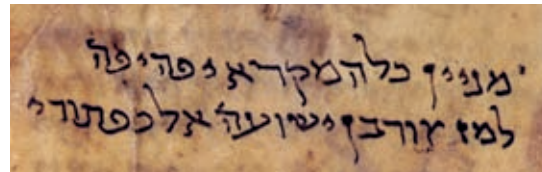 מניין כל המקרא יפה יפה
למזעור בן ישועה אלכפתורי